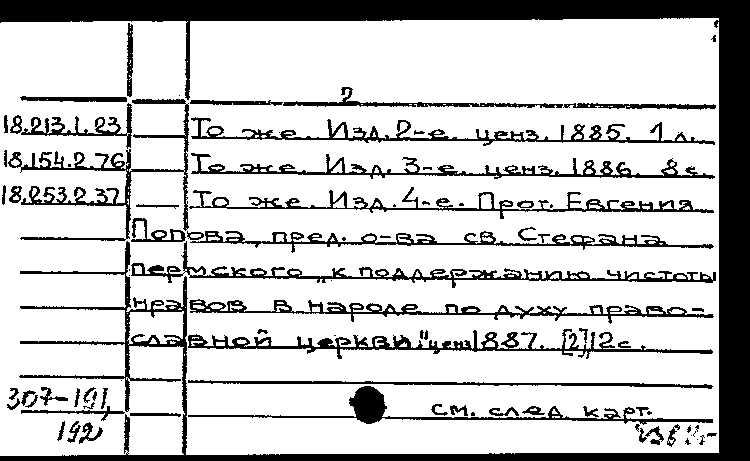 2
18.213.1.23 То же. Изд. 2-е. ценз. 1885. 1 л.
18.154.2.76 То же. Изд. 3-е. ценз. 1886. 8 с.
18.253.2.37 То же. Изд. 4-е. Прот. Евгения
Попова, пред. о-ва св. Стефана
пермского „к поддержанию чистоты
нравов в народе по духу право=
славной церкви." ценз 1887. [2] 12 с.
307-191, см. след. карт.
192